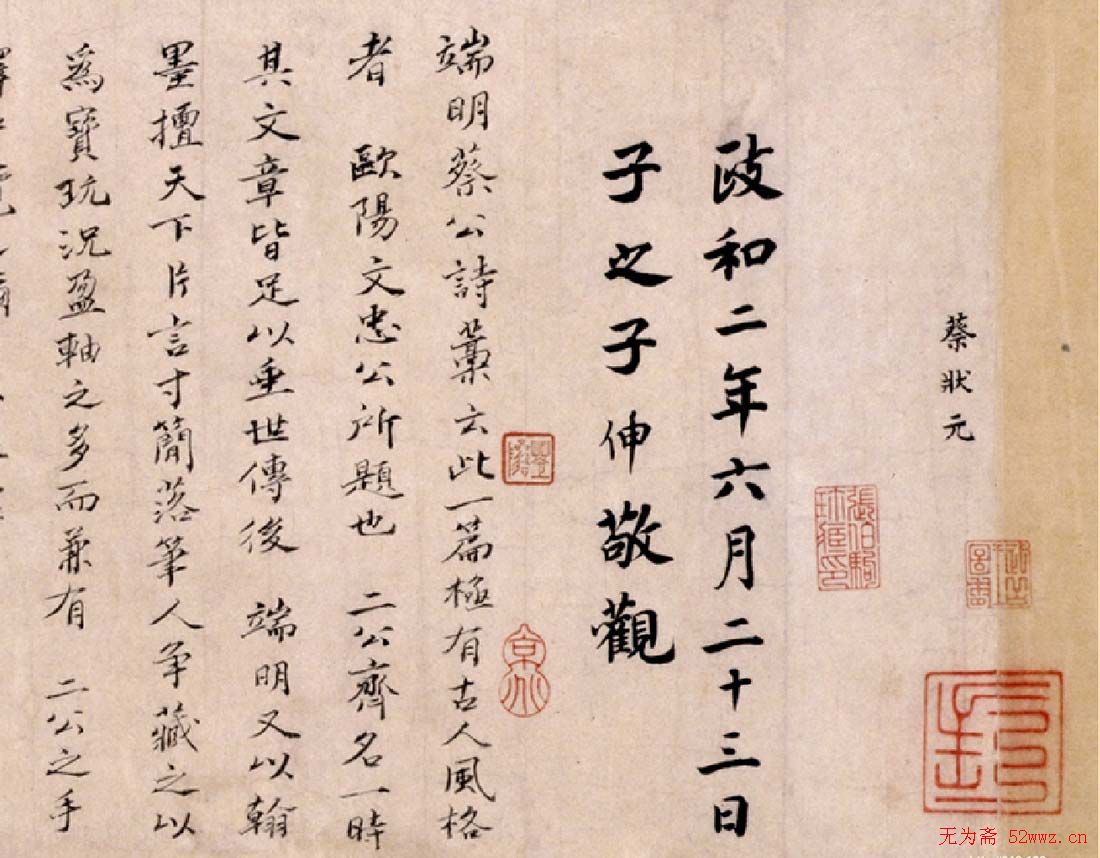 蔡狀元
張伯駒珍藏印
政和二年六月二十三日
子之子伸敬觀
端明蔡公詩藁云此一篇極有古人風格
者 歐陽文忠公所題也 二公齊名一時
其文章皆足以垂世傳後 端明又以翰
墨擅天下片言寸簡落筆人爭藏之以
為寶玩況盈軸之多而兼有 二公之手
无为斋 52wwz.cn